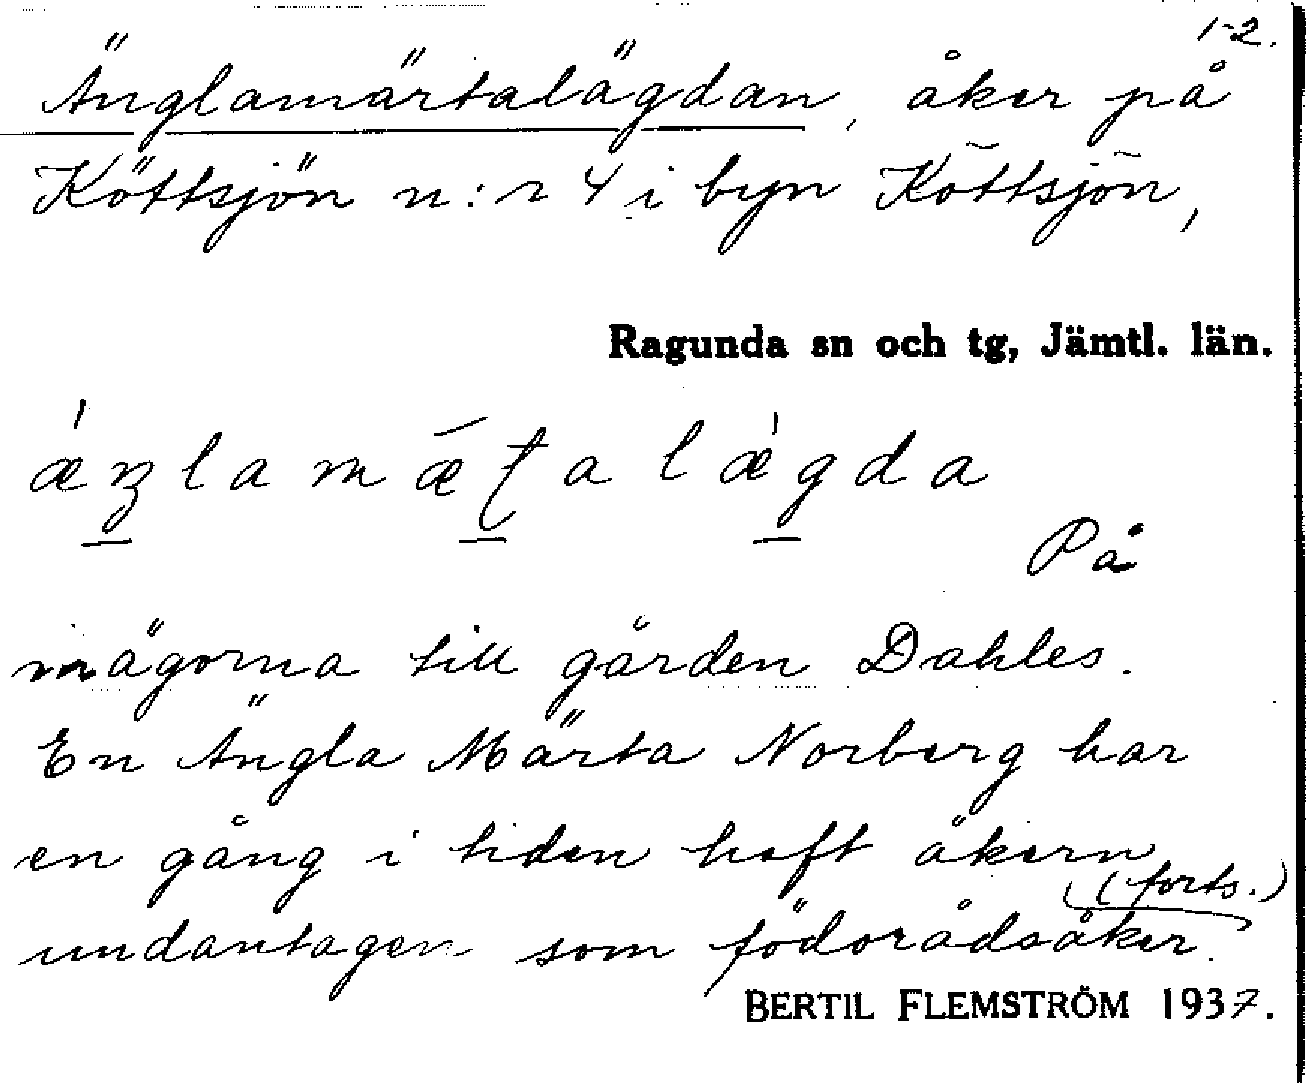 1-2.
Änglamärtalägdan, åker på
Köttsjön n:r 4 i byn Köttsjön,
Ragunda sn och tg, Jämtl. län.
lamǽ
På
inägorna till gården Dahles.
En Ängla Märta Norberg har
en gång i tiden haft åkern
(forts.)
undantagen som födorådsåker.
BERTIL FLEMSTRÖM 1937.